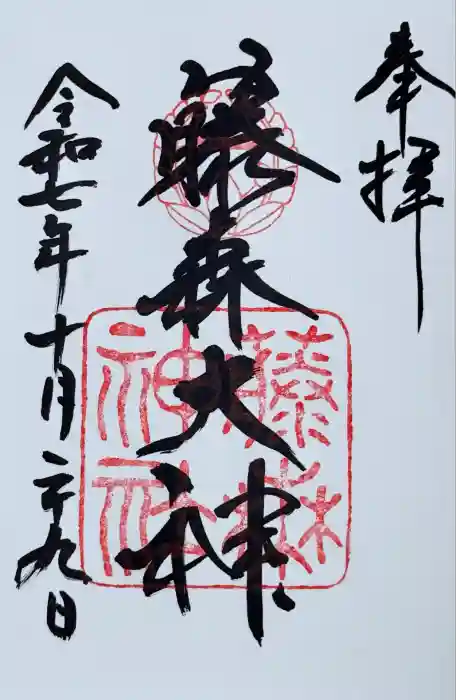 奉拝
藤森大神
令和七年十月二十九日
藤森
神社